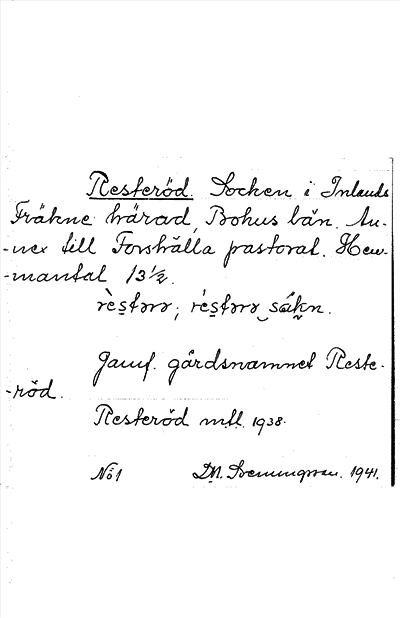 Resteröd. Socken i Inlands
Fräkne härad, Bohus län. An-
-nex till Forshälla pastorat. Hem-
-mantal 13 ½.
rèstərə; réstərə sókn.
Jämf. gårdsnamnet Reste-
-röd.
Resteröd mtl. 1938.
No 1 1941.